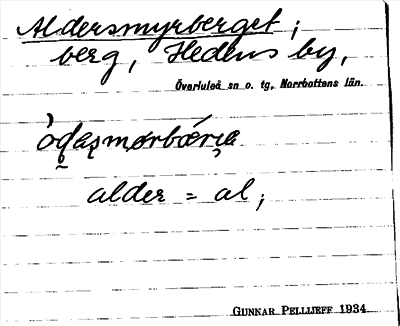 Aldersmyrberget ;
berg, Hedens by,
Överluleå sn o. tg, Norrbottens län.
alder = al ;
GUNNAR PELLIJEFF 1934